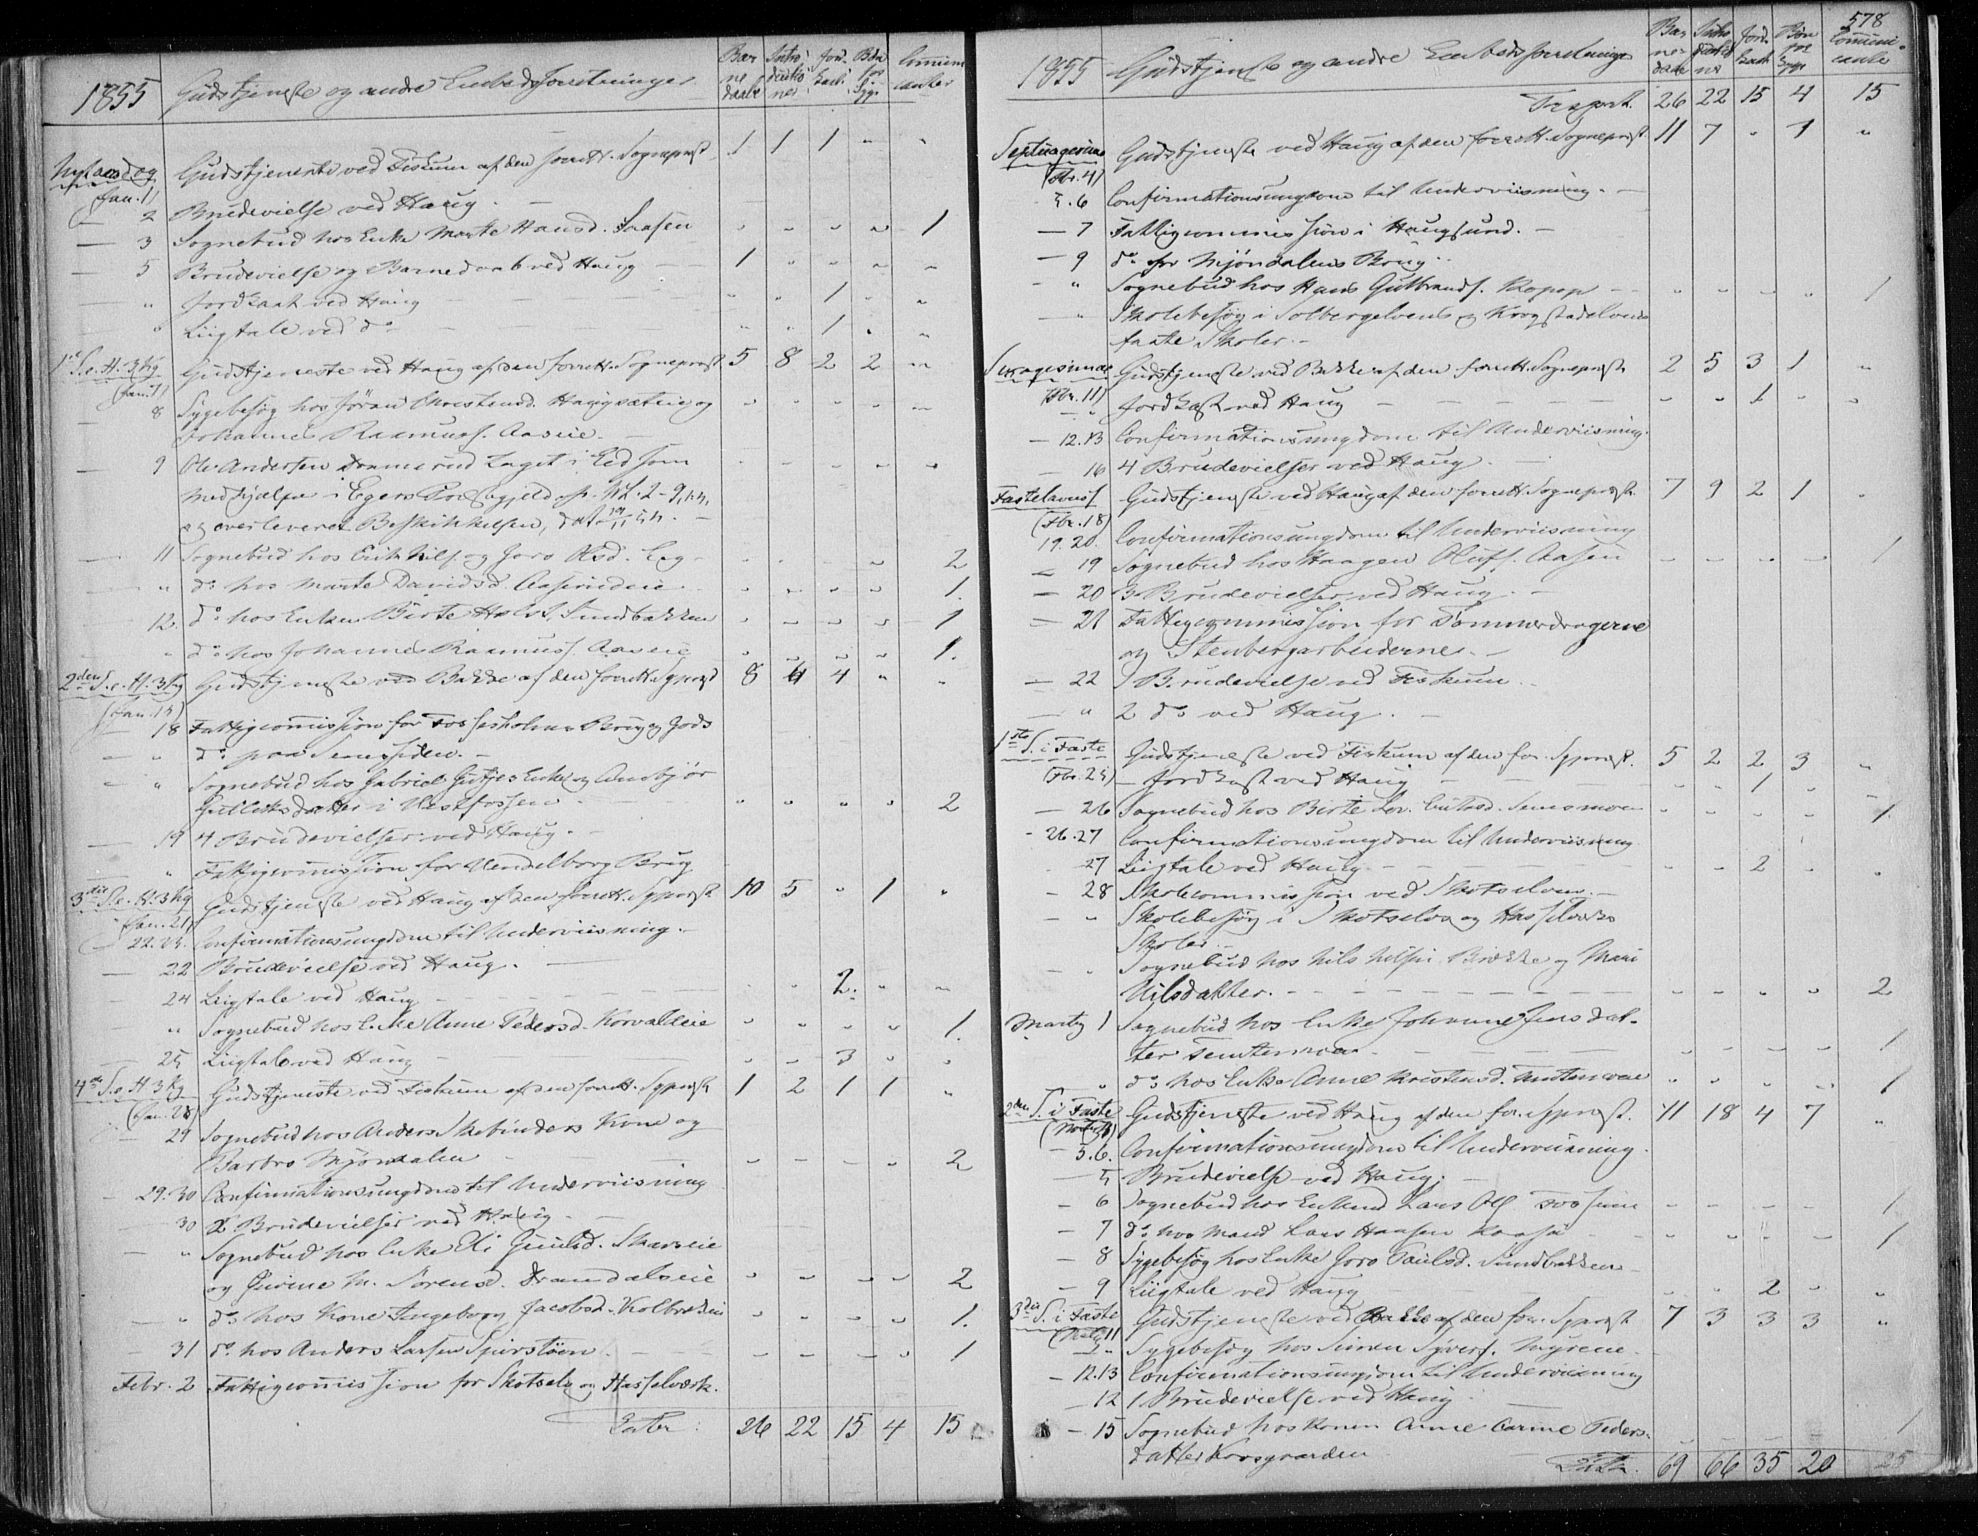 1855 Gudstjeneste og andre Embedsforretninger Bar nedaab Intro ductio ner Jord kast Bön for Syge Communi canter
Nytaarsdag Gudstjeneste ved Fiskum af den forrett. Sognepræst 1 1 1 " "
(Jan. 1)
2 Brudevielse ved Haug. —
— 3 Sognebud hos Enke Marte Hansd. Saasen " " " " 1
— 5 Brudevielse og Barnedaab ved Haug 1 " " " "
" Jordkast ved Haug " " 1 " "
" Liigtale ved do " " 1 " "
1ste S. e. H. 3 Kg. Gudstjeneste ved Haug af den forrett. Sognepræst 5 8 2 2 "
(Jan. 7)
8 Sygebesøg hos Jöran Christensd. Haugsæteie og " " " " "
Johannes Rasmuss. Aaseie. —
— 9 Ole Andersen Dramerud taget i Eed som " " " " "
Medhjælper i Egers Præstegjeld
og overleveret Beskikkelsen, dat.
— 11 Sognebud hos Erik Nilss og Joro Olsd. Eeg. " " " " 2
" do hos Marte Davidsd. Aaserudeie " " " " 1.
12. do hos Enken Birte Halv. Sundbakken " " " " 1
" do hos Johannes Rasmuss. Aaseie " " " " 1.
2den S. e. H. 3 Kg Gudstjeneste ved Bakke af den forrett. Sgpræst 8 4 4 " "
(Jan. 14)
— 18 Fattigcommission for Fossesholms Brug og Gods
— " do paa Semssiden. —
— " Sognebud hos Gabriel Enke og Anebjør
Gulliksdatter i Vestfossen " " " " 2
— 19 4 Brudevielser ved Haug. —
" Fattigcommission for Vendelborg Brug
3die S. e. H. 3 Kg Gudstjeneste ved Haug af den forrett. Sgpræst 10 5 " 1 "
(Jan. 21)
— 22. 23. Confirmationsungdom til Underviisning. —
— 22 Brudevielse ved Haug. —
— 24 Liigtale ved Haug — " " 2. " "
" Sognebud hos Enke Anne Pedersd. Korvaldeie " " " " 1.
— 25 Liigtale ved Haug — " " 3 " "
4de S. e. H. 3 Kg. Gudstjeneste ved Fiskum af den forrett. Sgpræst 1 2 1 1 "
(Jan. 28)
— 29 Sognebud hos Anders Skobinders Kone og
Barbro Mjøndalen " " " " 2
— 29. 30 Confirmationsungdom til Underviisning
— 30 2 Brudevielser ved Haug —
— " Sognebud hos Enke Eli Gunild. Skarseie
og M. Sørensd. Dramdalseie " " " " 2
— " do hos Kone Ingeborg Jacobsd. Kolbrækeie " " " " 1.
— 31 do. hos Anders Larsen Spirstøen. " " " " 1
Febr. 2 Fattigcommission for Skotselv og Hasselværk.
Later: 26 22 15 4 15
578
1855 Gudstjeneste og andre Embedsforretninger Bar nedaab Intro ductio ner Jord kast Bön for Syge Communi canter
Trsport. 26 22 15 4 15
Septuagesima Gudstjeneste ved Haug af den forrett. Sognepræst 11 7 " 1 "
(Fbr. 4)
5. 6 Confirmationsungdom til Underviisning. —
— 7 Fattigcommission i Haugsund. —
— 9 do for Mjöndalens Brug
— " Sognebud hos Hans Gulbrands. Kopop " " " " 1
— " Skolebesøg i Solbergelvens og Krogstadelvens
faste Skoler. —
Sexagesimæ Gudstjeneste ved Bakke af den forrett. Sognepræst 2 5 3 1 "
(Fbr. 11)
— " Jordkast ved Haug " " 1 " "
— 12. 13 Confirmationsungdom til Underviisning.
— 16 4 Brudevielser ved Haug. —
Fastelavns S. Gudstjeneste ved Haug af den forrett. Sognepræst 7 9 2 1 "
(Fbr. 18)
19. 20. Confirmationsungdom til Underviisning
— 19 Sognebud hos Haagen Olufs. Aasen " " " " 1
— 20 3 Brudevielser ved Haug. —
— 21 Fattigcommission for Tømmerdragerne
og Stenbergarbeiderne. —
— 22 1 Brudevielse ved Fiskum
— " 2 do ved Haug. —
1ste S. i Faste Gudstjeneste ved Fiskum af den for. Sgpræst. 5 2 2 3 "
(Fbr. 25) — Jordkast ved Haug " " 1 " "
— 26 Sognebud hos Birte Lov. Semsmoen " " " " 1.
- 26. 27 Confirmationsungdom til Underviisning
27 Liigtale ved Haug — " " 2 " "
— 28 Skolecommission ved Skotselven. —
— " Skolebesøg i Skotselv og Hasselværks
Skoler
— " Sognebud hos Nils Nilsen Brække og Mari
Nilsdatter. " " " " 2
Marts 1 Sognebud hos Enke Johanne Jensdat-
ter Temtemoen " " " " 1
" do hos Enke Anne Kristensd. Temtemoen " " " " 1
2den S. i Faste Gudstjeneste ved Haug af den for. Sgpræst. 11 18 4 7 "
(Marts 4)
— 5. 6. Confirmationsungdom til Underviisning.
— 5 Brudevielse ved Haug. —
— 6 Sognebud hos Enkmd Lars Ols. Fossum " " " " 1
— 7 do hos Mand Lars Hansen Kaasa " " " " 1
— 8 Sygebesøg hos Enke Joro Paulsd. Sundbakken —
— 9 Liigtale ved Haug " " 2 " "
3die S. i Faste Gudstjeneste ved Bakke af den for. Sgpræst 7 3 3 3 "
(Marts 11)
— " Sygebesøg hos Simen Syvers. Myrene. —
— 12. 13 Confirmationsungdom til Underviisning
— 12 1 Brudevielse ved Haug
— 15 Sognebud hos Konen Anne Carine Peders- 1
datter Korsgaarden " " " "
Later. 69 66 35 20 25